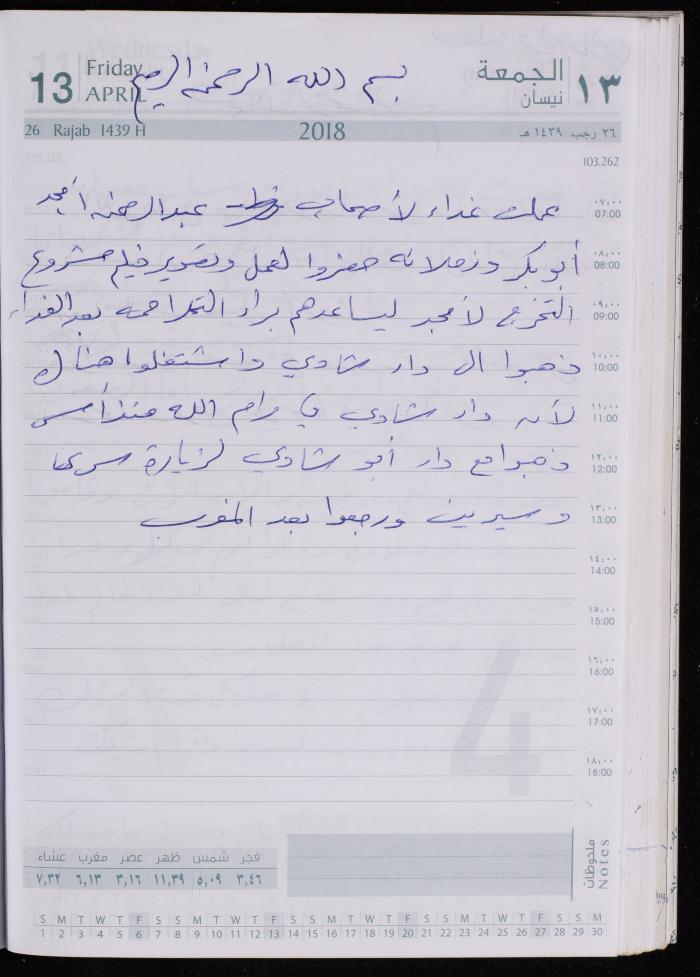 13 Friday APRIL بسم الله الرحمن الرحيم الجمعة نيسان ١٣
26 Rajab 1439 H 2018 ٢٦ رجب ١٤٣٩ هـ
103.262
عملت غداء لأصحاب عبدالرحمن أمجد
٠٧:٠٠ 07:00
أبو بكر وزملائه حضروا لعمل وتصوير فيلم مشروع
٠٨:٠٠ 08:00
التخرج لأمجد ليساعدهم براء التلاحمة بعد الغداء
٠٩:٠٠ 09:00
ذهبوا الى دار شادي واشتغلوا هناك
١٠:٠٠ 10:00
لأن دار شادي في رام الله منذ أمس
١١:٠٠ 11:00
ذهبوا مع دار أبو شادي لزيارة
١٢:٠٠ 12:00
وسيرين ورجعوا بعد المغرب
١٣:٠٠ 13:00
١٤:٠٠ 14:00
١٥:٠٠ 15:00
١٦:٠٠ 16:00
١٧:٠٠ 17:00
١٨:٠٠ 18:00
4
ملحوظات Notes
فجر شمس ظهر عصر مغرب عشاء
٣,٤٦ ٥,٠٩ ١١,٣٩ ٣,١٦ ٦,١٣ ٧,٣٢
S M T W T F S S M T W T F S S M T W T F S S M T W T F S S M
1 2 3 4 5 6 7 8 9 10 11 12 13 14 15 16 17 18 19 20 21 22 23 24 25 26 27 28 29 30